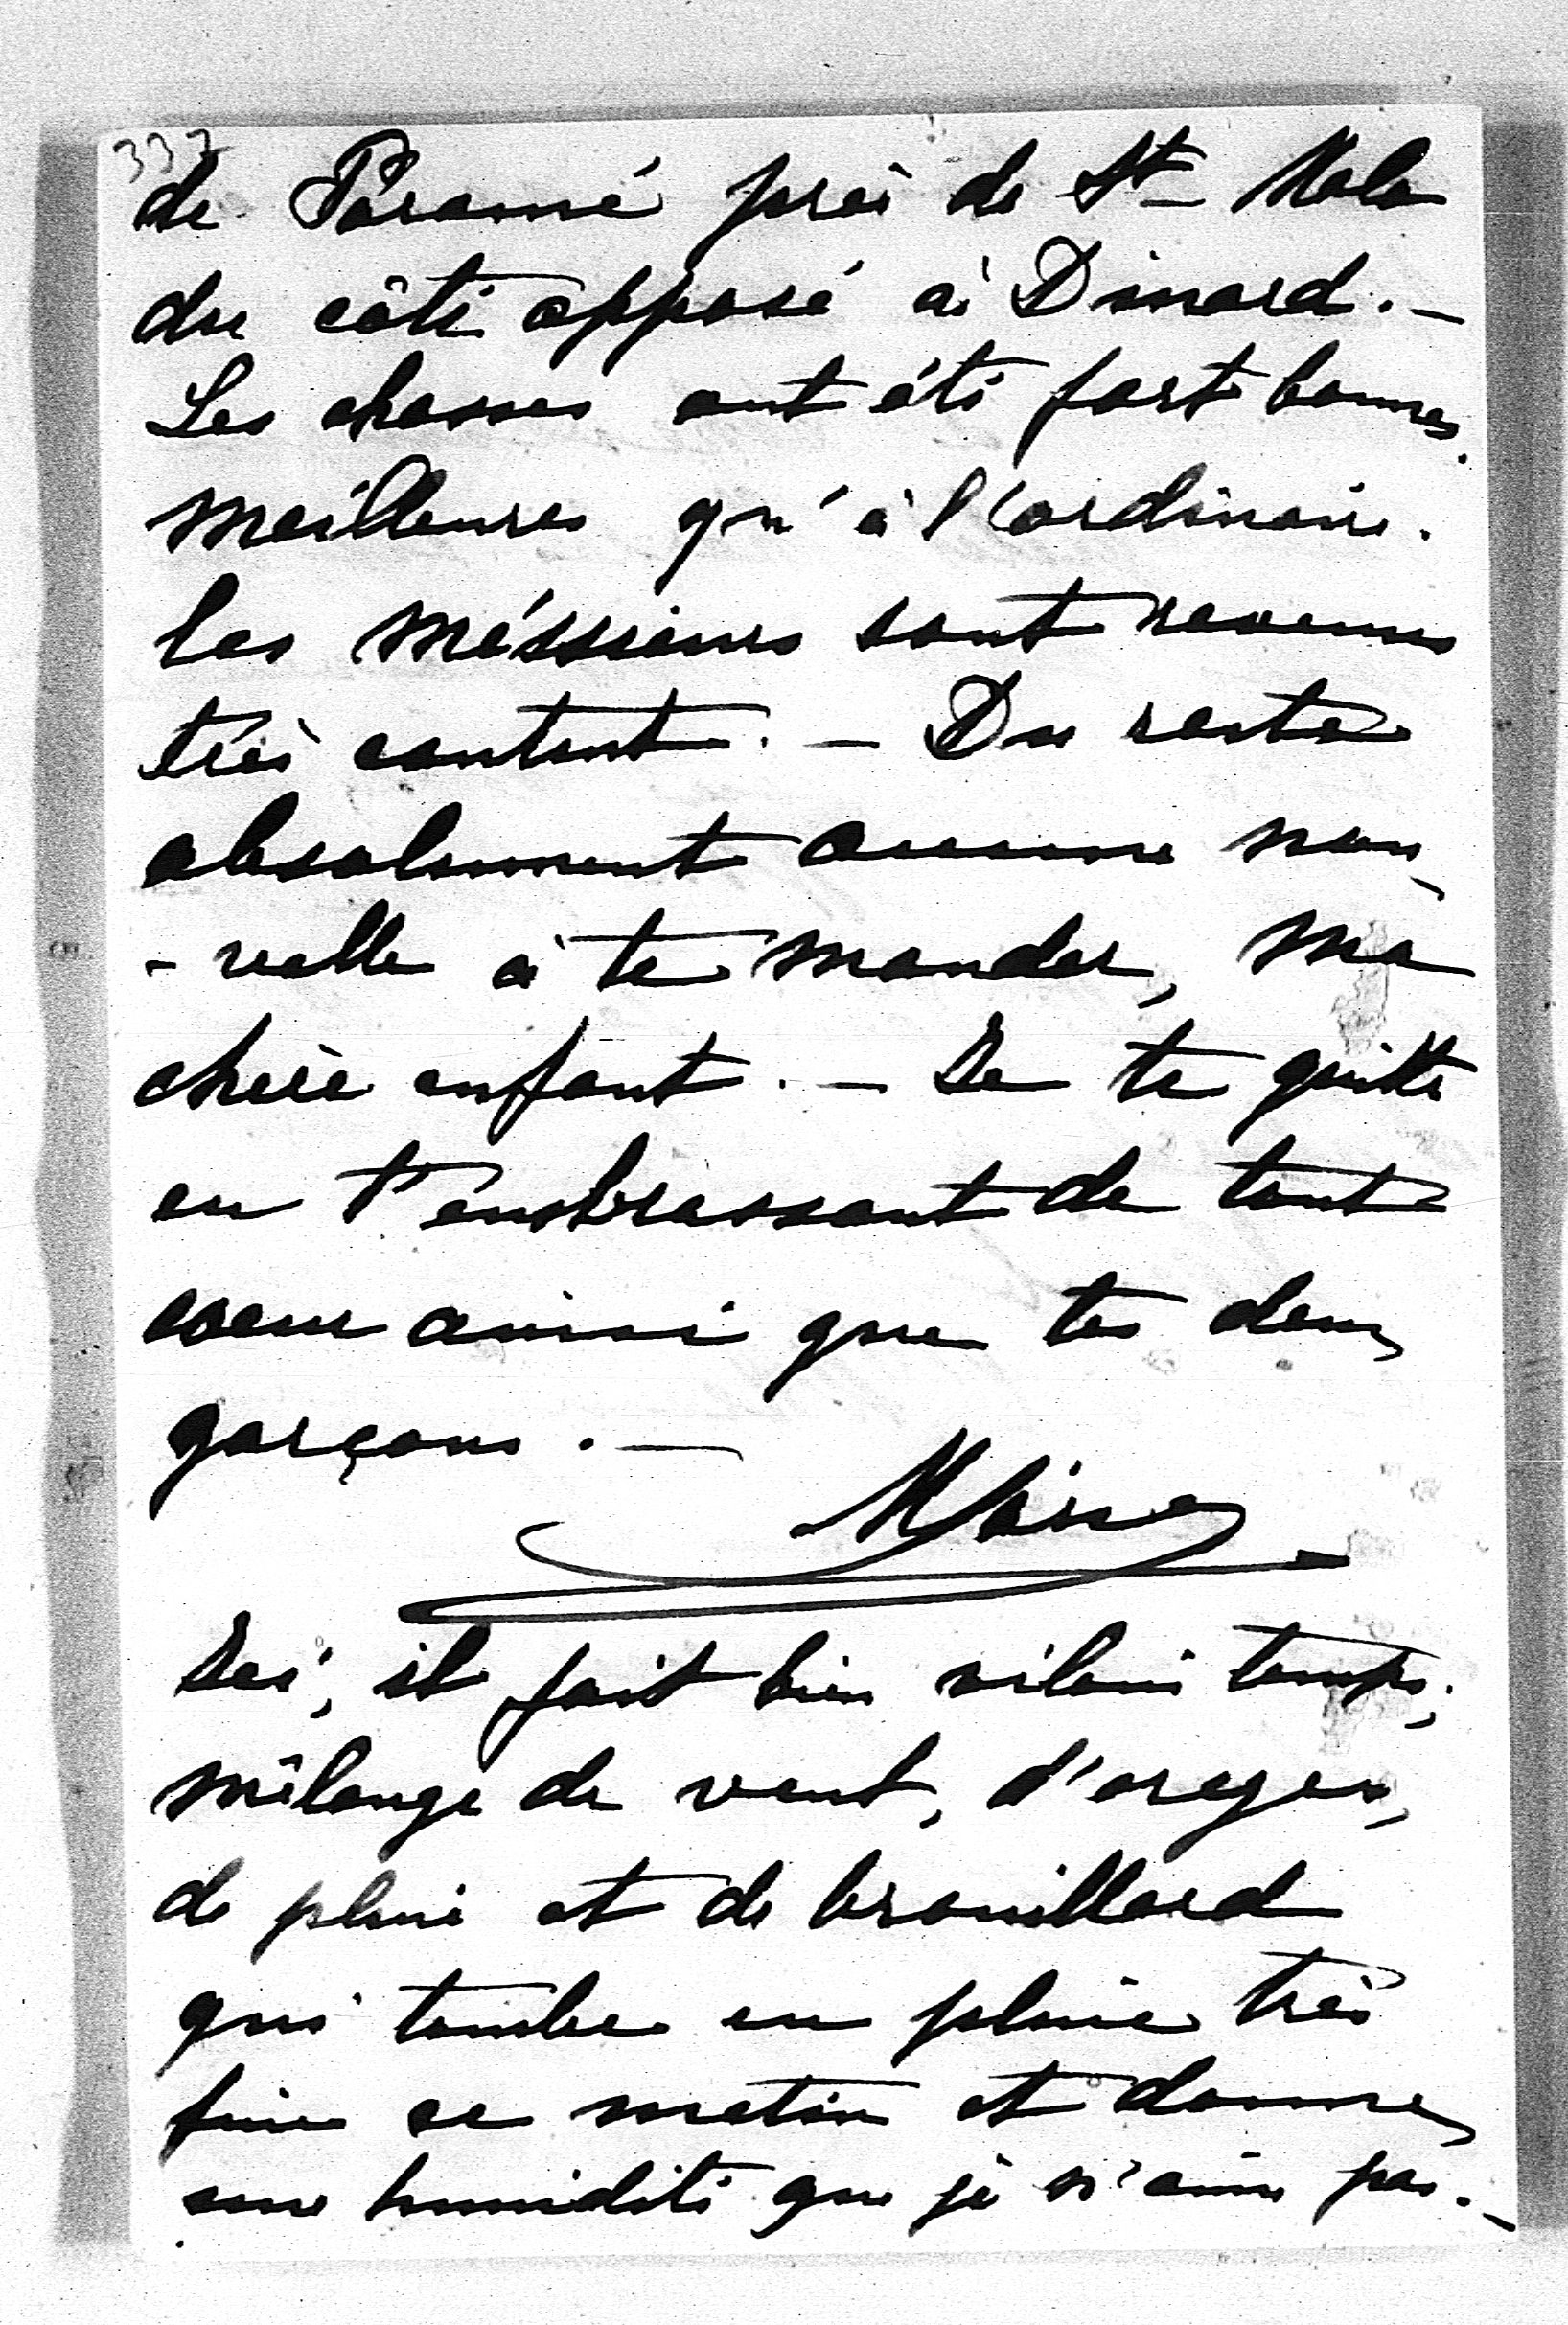 337
de Paramé près de St- Malo
du côté opposé à Dinard. -
Les chasses ont été fort bonnes,
meilleures qu'à l'ordinaire.
les méssieurs sont revenus
très content. - Du reste
absolument aucune nou-
-velle à te mander, ma
chère enfant. - Je te quitte
en t'embrassant de tout
coeur ainsi que tes deux
garçons. -
Ici, il fait bien vilain temps,
mélange de vent, d'orages,
de pluie et de brouillard
qui tombe en pluie très
fine ce matin et donne
une humidité que je n'aime pas. -